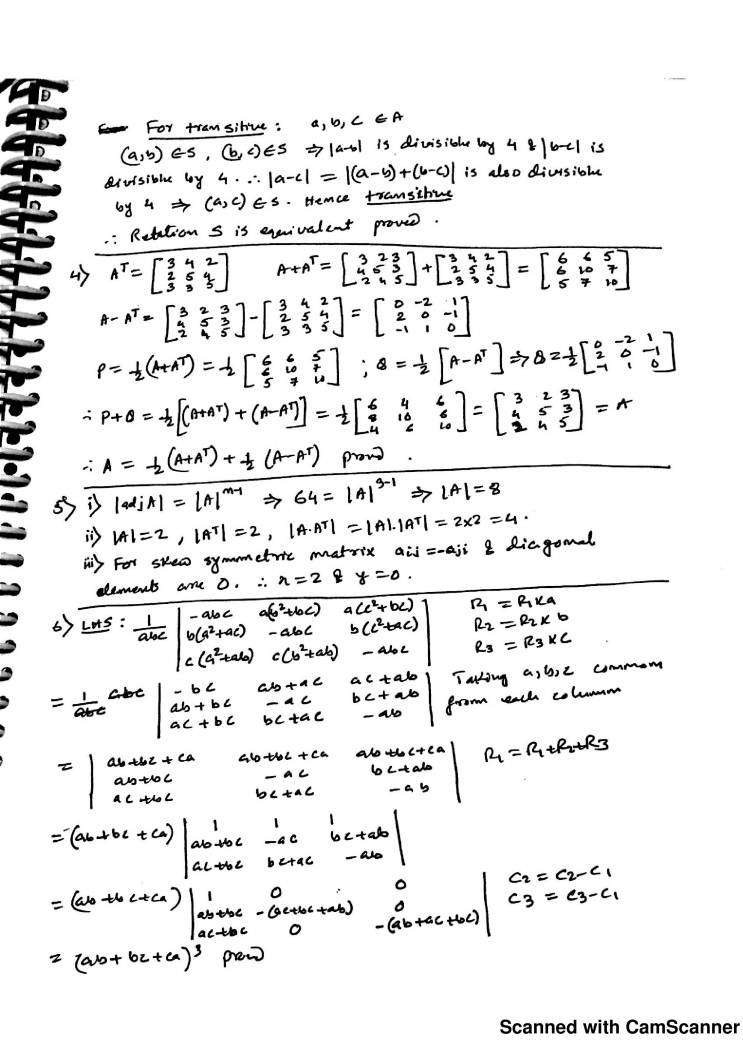 For transitive : a, b, c ∈ A
(a,b) ∈ S , (b,c) ∈ S ⇒ |a-b| is divisible by 4 & |b-c| is
divisible by 4 . ∴ |a-c| = |(a-b)+(b-c)| is also divisible
by 4 ⇒ (a,c) ∈ S . Hence transitive
∴ Relation S is equivalent proved .
4) Aᵀ = [3 4 2; 2 5 4; 3 3 5] A+Aᵀ = [3 2 3; 4 5 3; 2 4 5] + [3 4 2; 2 5 4; 3 3 5] = [6 6 5; 6 10 7; 5 7 10]
A - Aᵀ = [3 2 3; 4 5 3; 2 4 5] - [3 4 2; 2 5 4; 3 3 5] = [0 -2 1; 2 0 -1; -1 1 0]
P = ½(A+Aᵀ) = ½ [6 6 5; 6 10 7; 5 7 10] ; Q = ½ [A-Aᵀ] ⇒ Q = ½ [0 -2 1; 2 0 -1; -1 1 0]
∴ P+Q = ½[(A+Aᵀ) + (A-Aᵀ)] = ½ [6 4 6; 8 10 6; 4 6 10] = [3 2 3; 4 5 3; 2 4 5] = A
∴ A = ½(A+Aᵀ) + ½ (A-Aᵀ) proved .
5) i) |adj A| = |A|ⁿ⁻¹ ⇒ 64 = |A|³⁻¹ ⇒ |A| = 8
ii) |A| = 2 , |Aᵀ| = 2 , |A.Aᵀ| = |A|.|Aᵀ| = 2x2 = 4 .
iii) For skew symmetric matrix aij = -aji & diagonal
elements are 0 . ∴ x = 2 & y = 0 .
6) LHS : 1/abc |-abc a(b²+bc) a(c²+bc); b(a²+ac) -abc b(c²+ac); c(a²+ab) c(b²+ab) -abc| R₁ = R₁xa
R₂ = R₂x b
R₃ = R₃ x c
= 1/abc abc |-bc ab+ac ac+ab; ab+bc -ac bc+ab; ac+bc bc+ac -ab| Taking a, b, c common
from each column
= |ab+bc+ca ab+bc+ca ab+bc+ca; ab+bc -ac bc+ab; ac+bc bc+ac -ab| R₁ = R₁+R₂+R₃
= (ab+bc+ca) |1 1 1; ab+bc -ac bc+ab; ac+bc bc+ac -ab|
= (ab+bc+ca) |1 0 0; ab+bc -(ac+bc+ab) 0; ac+bc 0 -(ab+ac+bc)| C₂ = C₂-C₁
C₃ = C₃-C₁
= (ab+bc+ca)³ proved
Scanned with CamScanner